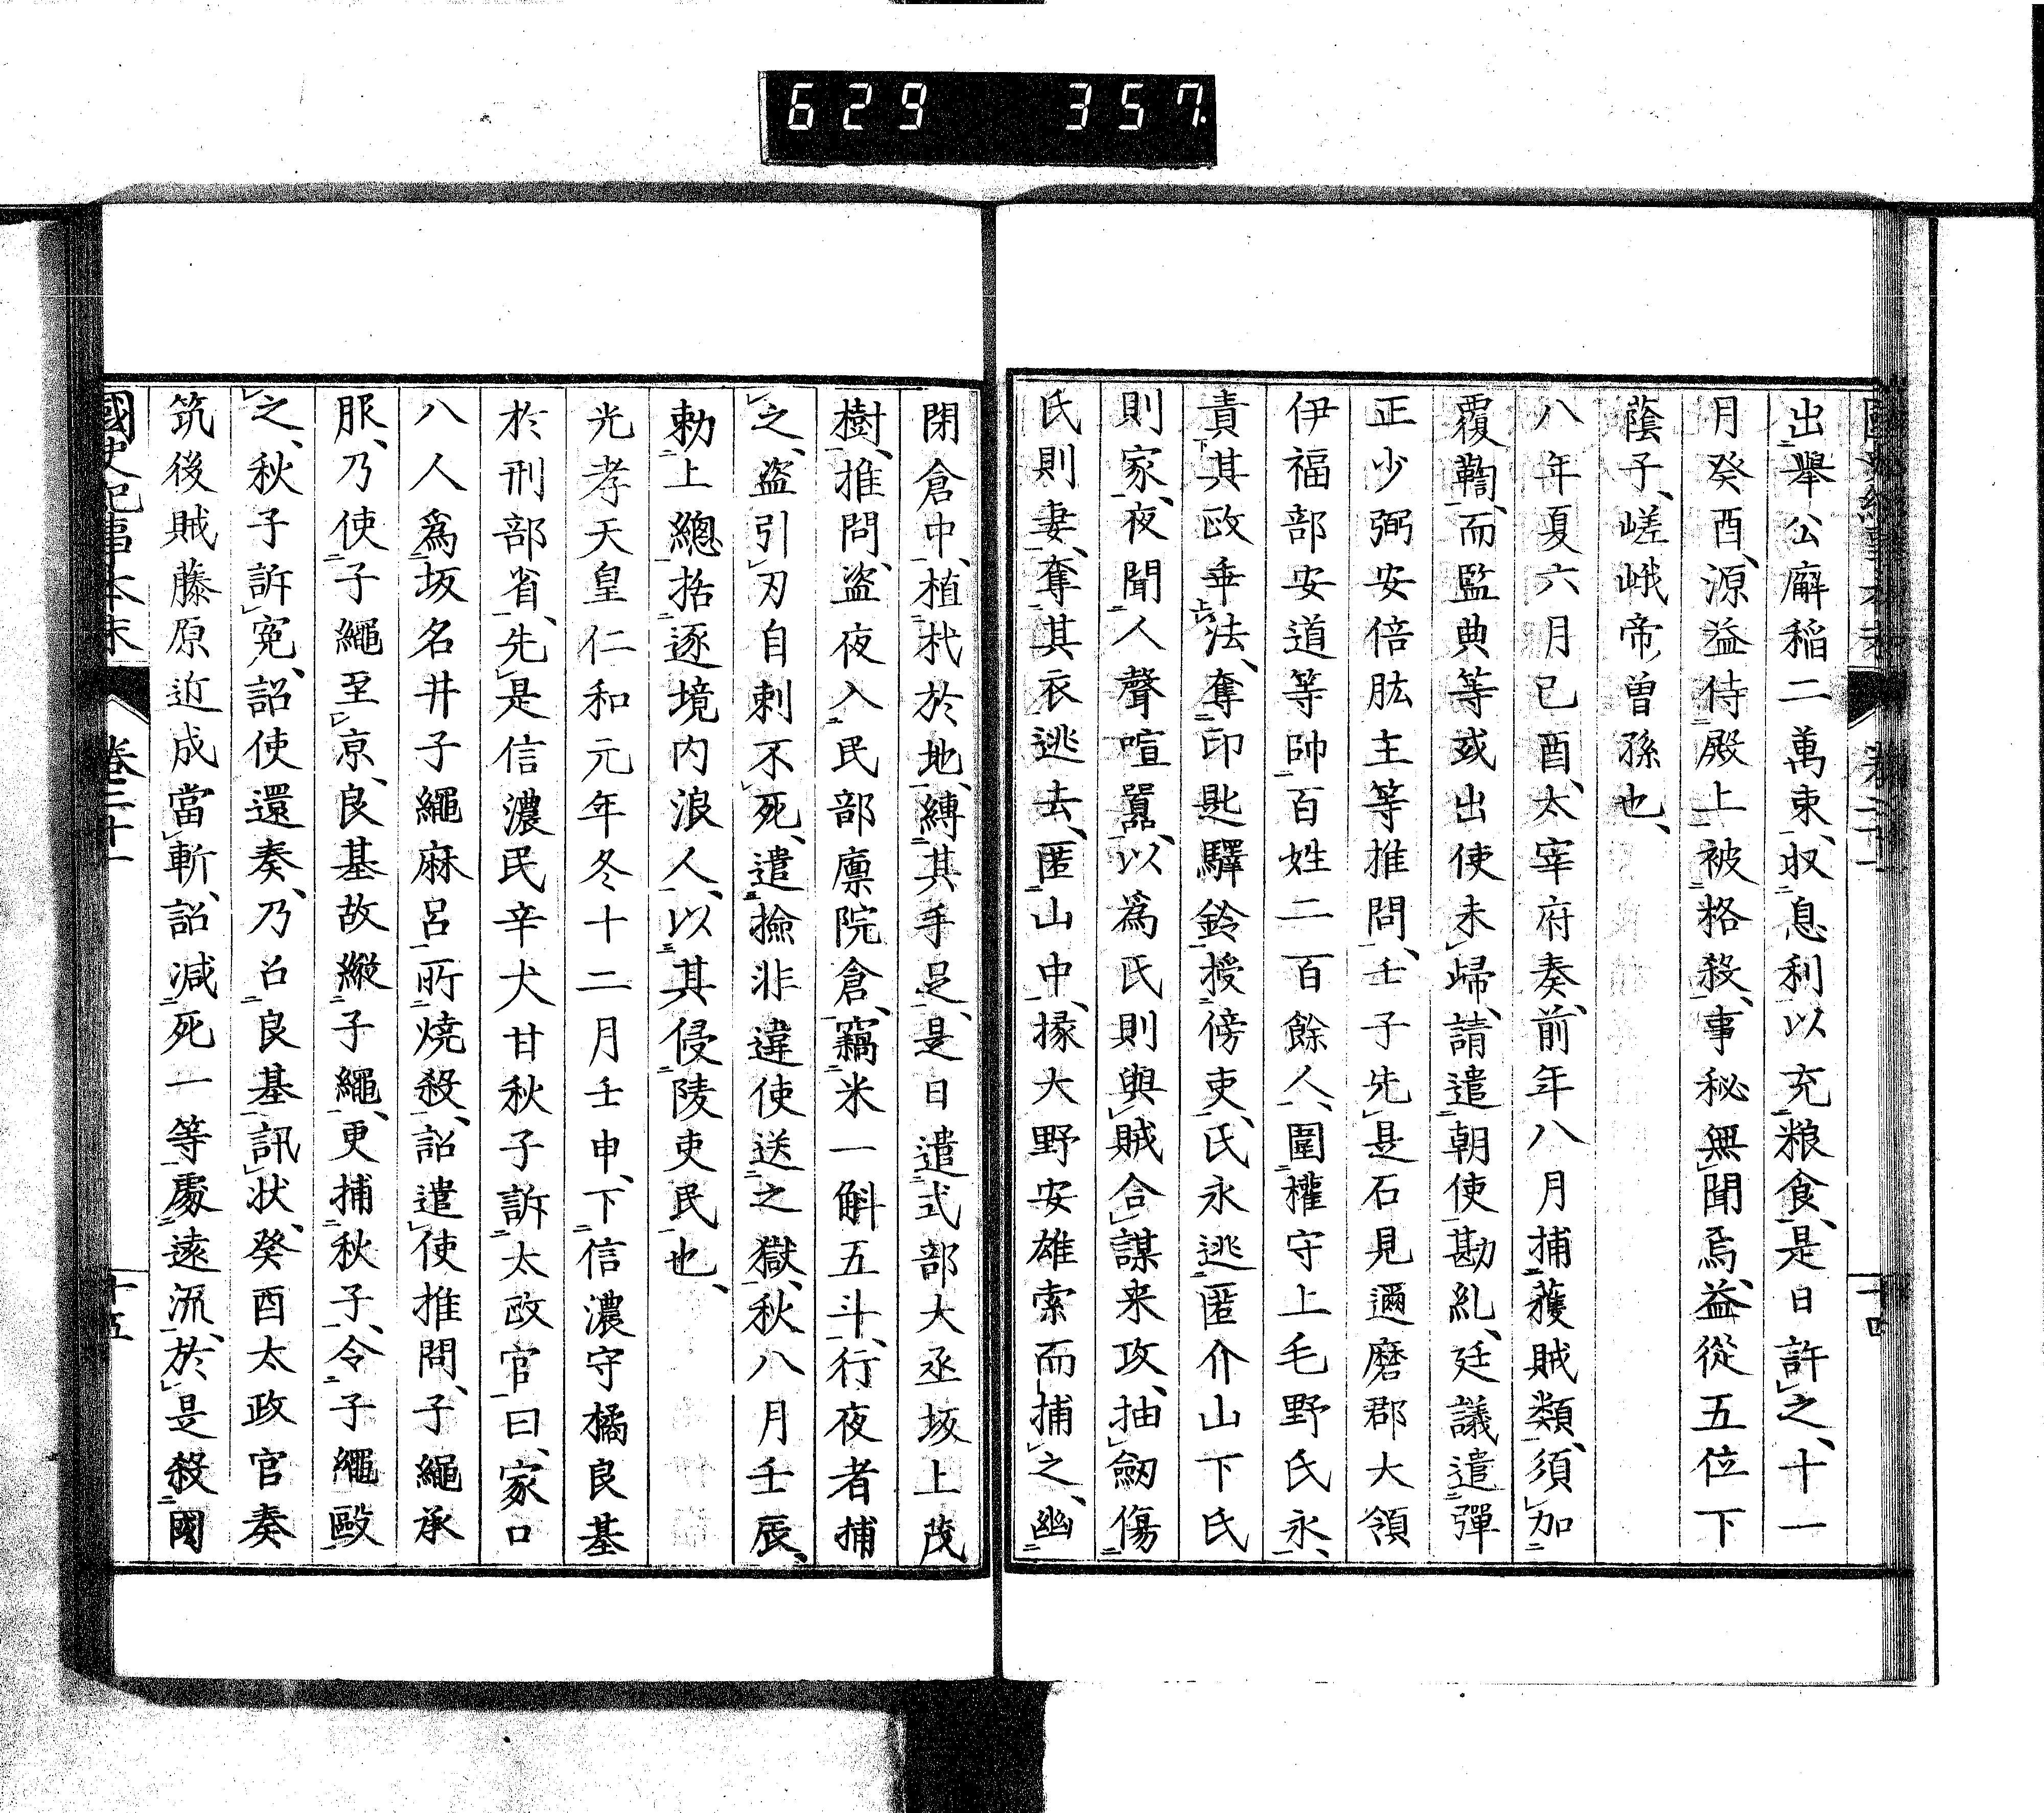 629 357.
出擧公廨稲二萬束、収息利以充粮食、是日許之、十一
月癸酉、源益侍殿上被格殺、事秘無聞焉、益從五位下
蔭子、嵯峨帝曽孫也、
八年夏六月已酉、太宰府奏、前年八月捕獲賊類、須加
覆鞫、而監典等或出使未歸、請遣朝使勘糺、廷議遣彈
正少弼安倍肱主等推問、壬子先是石見邇磨郡大領
伊福部安道等帥百姓二百餘人、圍權守上毛野氏永、
責其政乖法、奪印匙驛鈴授傍吏、氏永逃匿介山下氏
則家、夜聞人聲喧囂、以爲氏則與賊合謀来攻、抽劒傷
氏則妻、奪其衣逃去、匿山中、掾大野安雄索而捕之、幽
閉倉中、植杙於地、縛其手足、是日遣式部大丞坂上茂
樹、推問、盗夜入民部廪院倉、竊米一斛五斗、行夜者捕
之、盗引刃自刺不死、遣撿非違使送之獄、秋八月壬辰、
勅上總括逐境内浪人、以其侵陵吏民也、
光孝天皇仁和元年冬十二月壬申、下信濃守橘良基
於刑部省、先是信濃民辛犬甘秋子訴太政官曰、家口
八人爲坂名井子繩麻呂所燒殺、詔遣使推問、子繩承
服、乃使子繩至京、良基故縱子繩、更捕秋子、令子繩毆
之、秋子訴冤、詔使還奏、乃召良基訊状、癸酉太政官奏
筑後賊藤原近成當斬、詔減死一等處遠流、於是殺國
國史紀事本末 卷二十一 十五